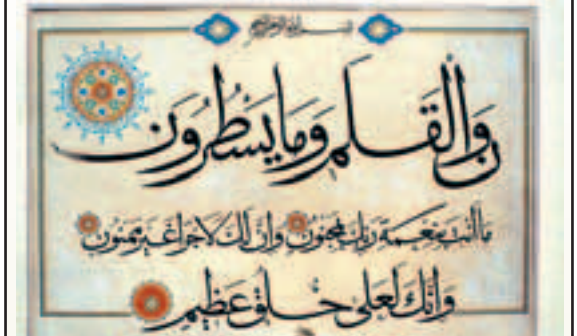 بسم الله الرحمن الرحيم
ن وَالْقَلَمِ وَمَا يَسْطُرُونَ
مَا أَنْتَ بِنِعْمَةِ رَبِّكَ بِمَجْنُونٍ وَإِنَّ لَكَ لَأَجْرًا غَيْرَ مَمْنُونٍ
وَإِنَّكَ لَعَلَى خُلُقٍ عَظِيمٍ